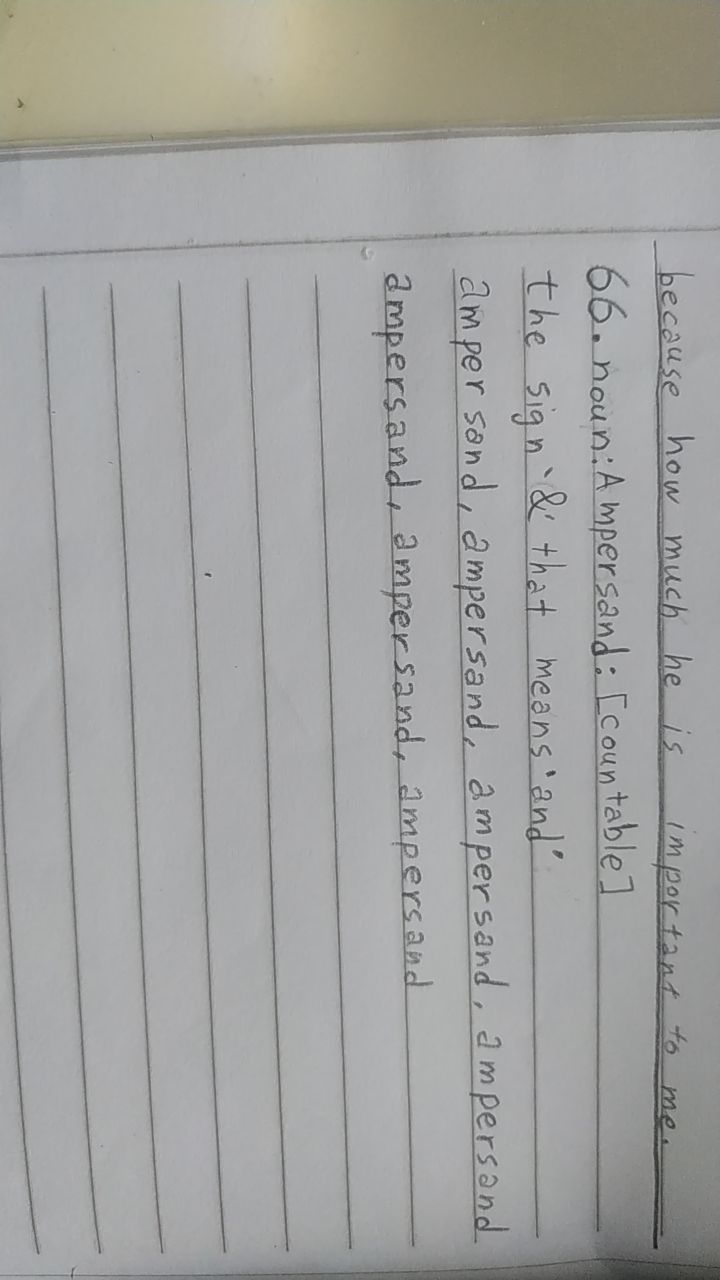 because how much he is important to me.
66. noun: Ampersand: [countable]
the sign '&' that means 'and'
ampersand, ampersand, ampersand, ampersand
ampersand, ampersand, ampersand